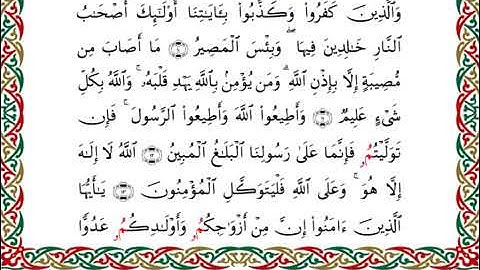 وَٱلَّذِينَ كَفَرُواْ وَكَذَّبُواْ بِـَٔايَـٰتِنَآ أُوْلَـٰٓئِكَ أَصْحَـٰبُ
ٱلنَّارِ خَـٰلِدِينَ فِيهَا ۖ وَبِئْسَ ٱلْمَصِيرُ ۝ مَآ أَصَابَ مِن
مُّصِيبَةٍ إِلَّا بِإِذْنِ ٱللَّهِ ۗ وَمَن يُؤْمِنۢ بِٱللَّهِ يَهْدِ قَلْبَهُۥ ۚ وَٱللَّهُ بِكُلِّ
شَىْءٍ عَلِيمٌ ۝ وَأَطِيعُواْ ٱللَّهَ وَأَطِيعُواْ ٱلرَّسُولَ ۚ فَإِن
تَوَلَّيْتُمُۥ فَإِنَّمَا عَلَىٰ رَسُولِنَا ٱلْبَلَـٰغُ ٱلْمُبِينُ ۝ ٱللَّهُ لَآ إِلَـٰهَ
إِلَّا هُوَ ۚ وَعَلَى ٱللَّهِ فَلْيَتَوَكَّلِ ٱلْمُؤْمِنُونَ ۝ يَـٰٓأَيُّهَا
ٱلَّذِينَ ءَامَنُوٓاْ إِنَّ مِنْ أَزْوَٰجِكُمُۥ وَأَوْلَـٰدِكُمُۥ عَدُوًّا